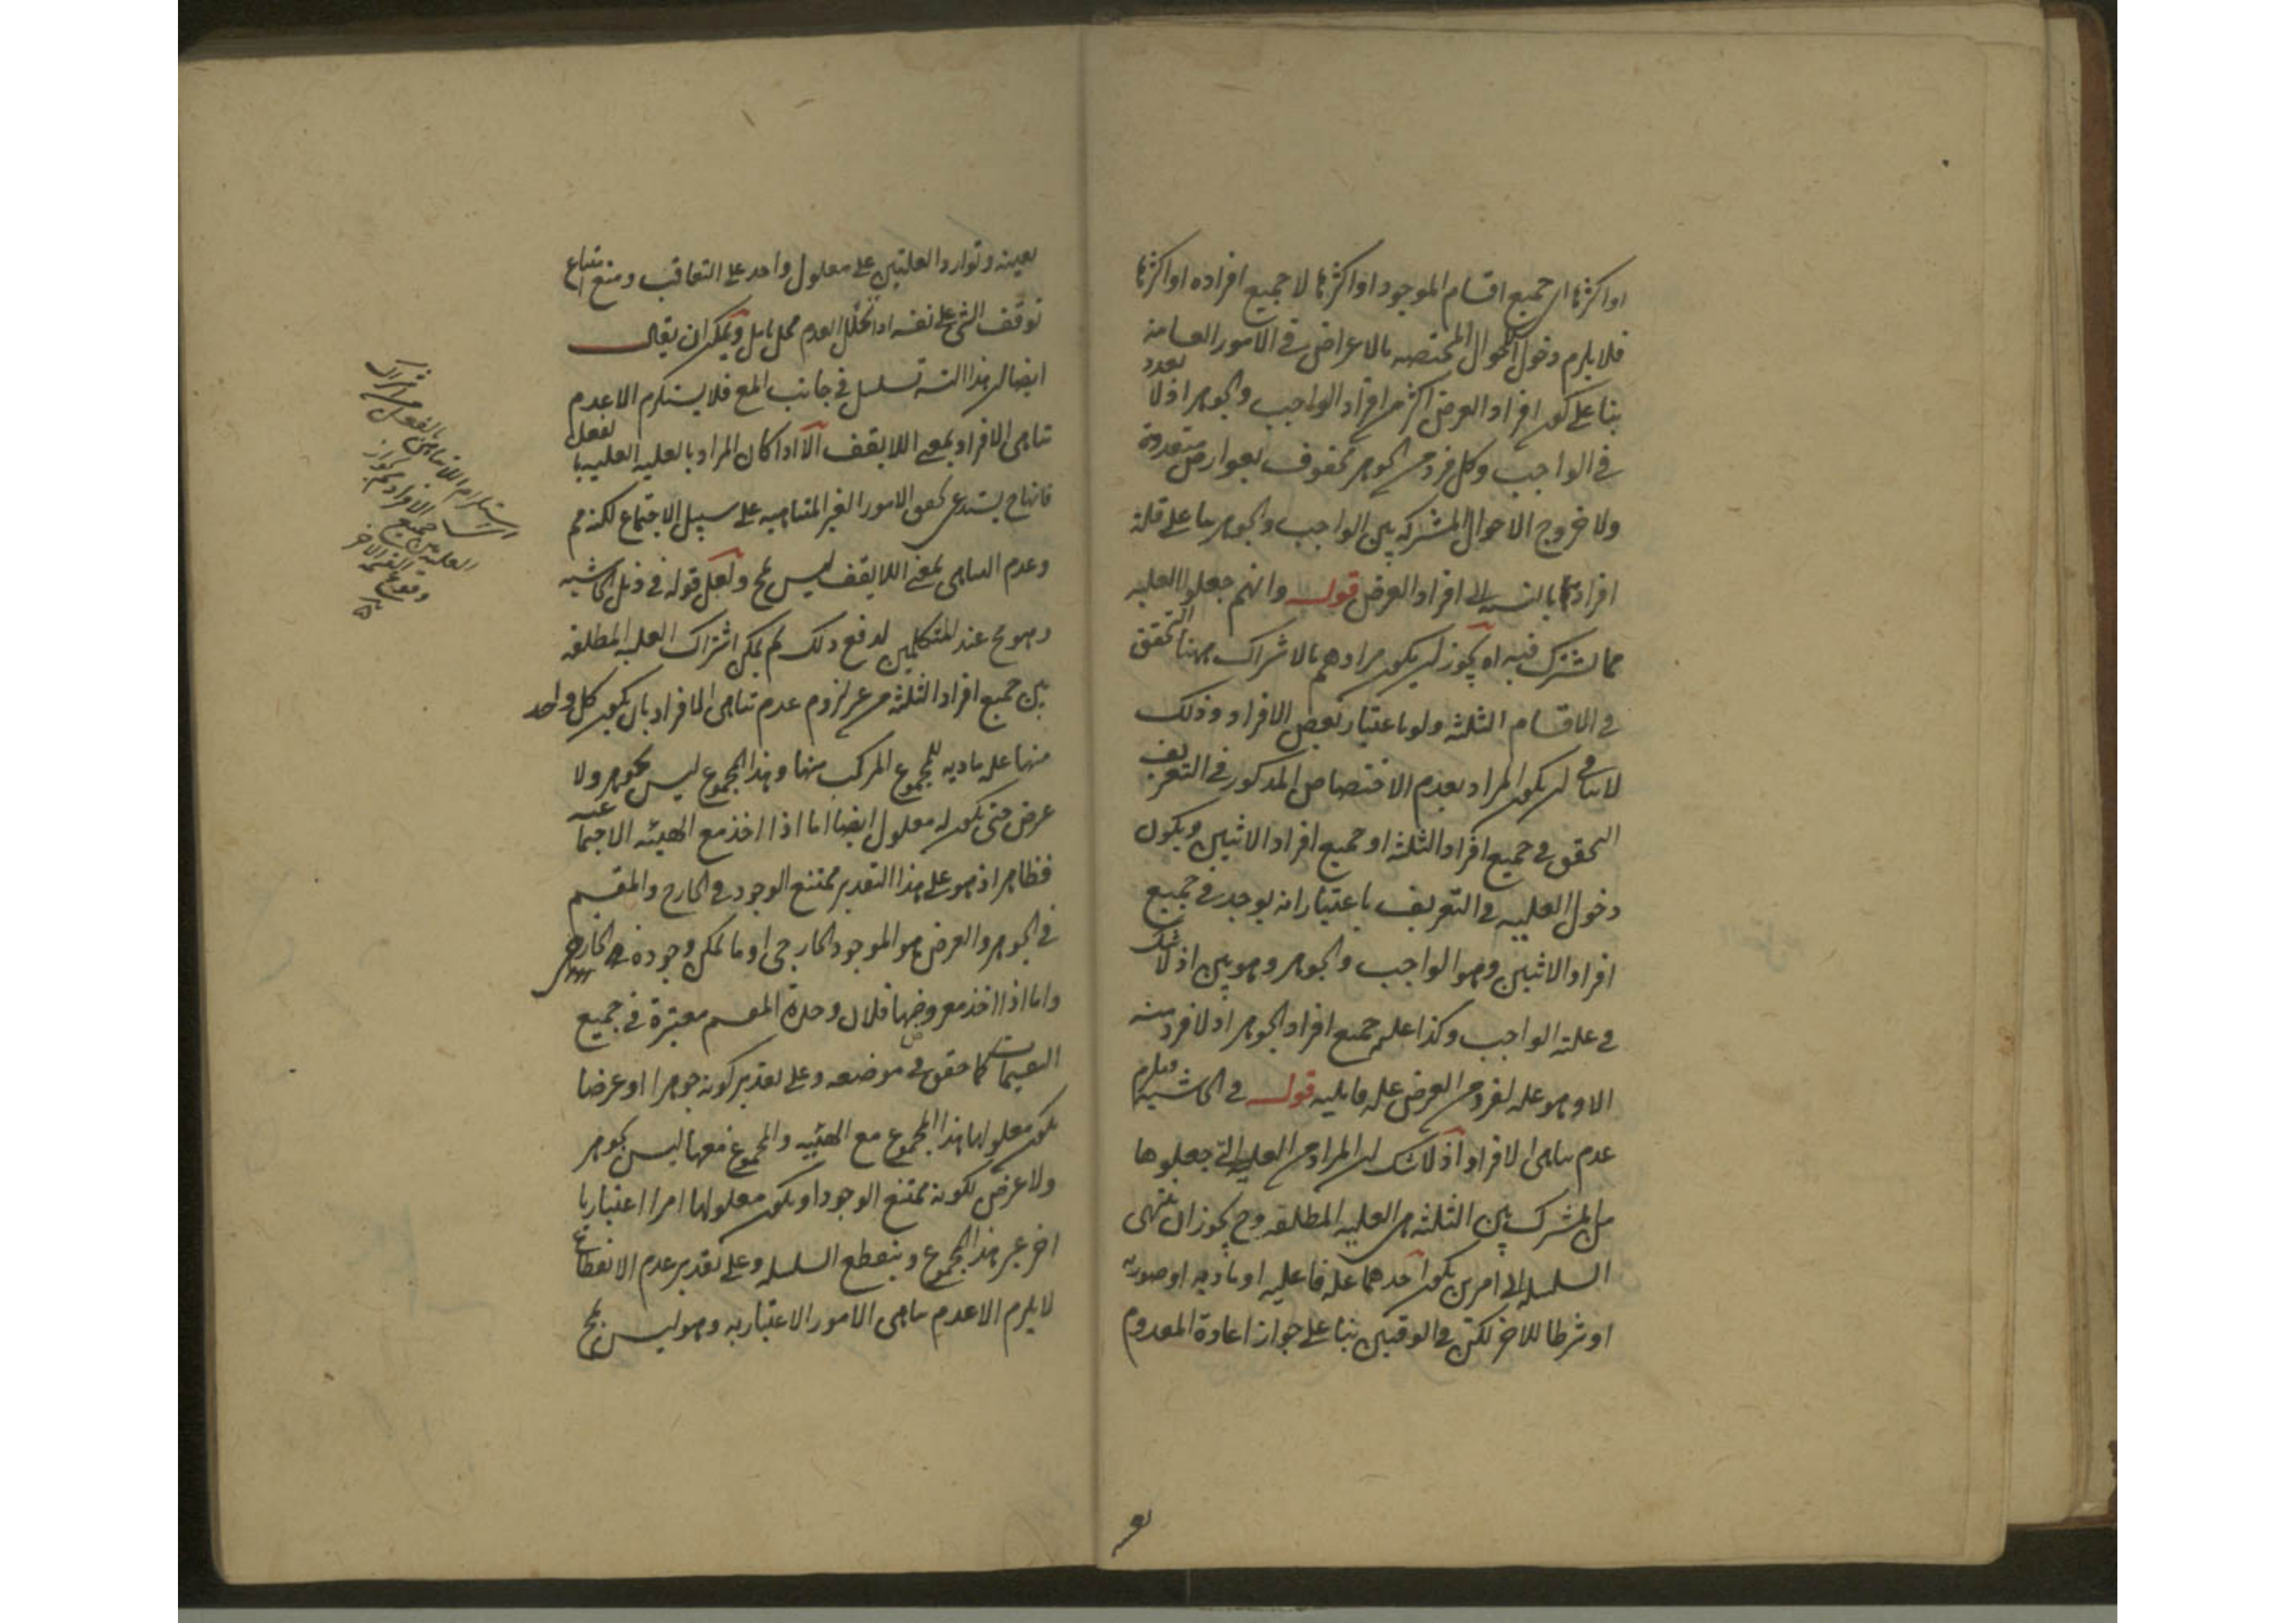 او اكثرها اى جميع اقسام الموجود او اكثرها لا جميع افراده او اكثرها
فلا يلزم دخول الاحوال المختصه بالاعراض فى الامور العامة
بناء على كون افراد العرض اكثر من افراد الواجب والجوهر اذ لا تعدد
فى الواجب وكل فرد من الجوهر محفوف بعوارض متعددة
ولا خروج الاحوال المشتركه بين الواجب والجوهر بناء على قلة
افرادها بالنسبه الى افراد العرض قوله وانهم جعلوا العليه
مما يشترك فيه اه يجوز ان يكون مرادهم بالاشتراك ههنا التحقق
فى الاقسام الثلثه ولو باعتبار بعض الافراد وذلك
لا ينافى ان يكون المراد بعدم الاختصاص المذكور فى التعريف
التحقق فى جميع افراد الثلثة او جميع افراد الاثنين ويكون
دخول العليه فى التعريف باعتبار انه يوجد فى جميع
افراد الاثنين وهو الواجب والجوهر وهو بين اذ لا شك
فى علته الواجب وكذا علم جميع افراد الجوهر اذ لا فرد منه
الا وهو عله لفرد من العرض عله قابليه قوله فى الحاشيه فيلزم
عدم تناهى الافراد اذ لا شك ان المراد من العليه التى جعلوها
من المشترك بين الثلثه هى العليه المطلقه وح يجوز ان ينتهى
السلسله الى امرين يكون احدهما عله فاعليه او ماديه او صوريه
او شرطا للاخر لكن فى الوقتين بناء على جواز اعادة المعدوم
بعينه وتوارد العلتين على معلول واحد على التعاقب ومنع امتناع
توقف الشئ على نفسه اذا تخلل العدم محل تامل ويمكن ان يقال
ايضا ان هذا التسلسل فى جانب المع فلا يستلزم الا عدم
تناهى الافراد بمعنى اللا يقف الا اذا كان المراد بالعليه العليه بالفعل
فانها ح يستدعى تحقق الامور الغير المتناهيه على سبيل الاجتماع لكنه مم
وعدم التناهى بمعنى اللا يقف ليس بمح ولعل قوله فى ذيل الحاشيه
وهو مح عند المتكلمين لدفع ذلك ثم يمكن اشتراك العليه المطلقه
بين جميع افراد الثلثه من غير لزوم عدم تناهى الافراد بان يكون كل واحد
منها عله ماديه للمجموع المركب منها وهذا المجموع ليس بجوهر ولا
عرض حتى يكون له معلول ايضا اما اذا اخذ مع الهيئه الاجتماعيه
فظاهر اذ هو على هذا التقدير ممتنع الوجود فى الخارج والمقسم
فى الجوهر والعرض هو الموجود الخارجى او ما يمكن وجوده فى الخارج
واما اذا اخذ معروضها فلان وحدة المقسم معتبرة فى جميع
التقسيمات كما حقق فى موضعه وعلى تقدير كونه جوهرا او عرضا
يكون معلولها هذا المجموع مع الهيئيه والمجموع معها ليس بجوهر
ولا عرض لكونه ممتنع الوجود او يكون معلولها امرا اعتباريا
اخر غير هذا المجموع وينقطع السلسله وعلى تقدير عدم الانقطاع
لا يلزم الا عدم تناهى الامور الاعتباريه وهو ليس بمح
العليه بين جميع الافراد